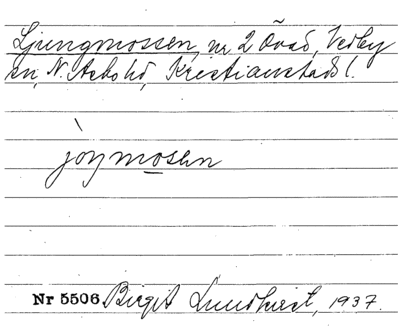 Ljungmossen, nr 2 Övad, Vedby
sn, N. Åsbo hd, Kristianstads l.
jòymosen
Nr 5506 Birgit Lundkvist, 1937.